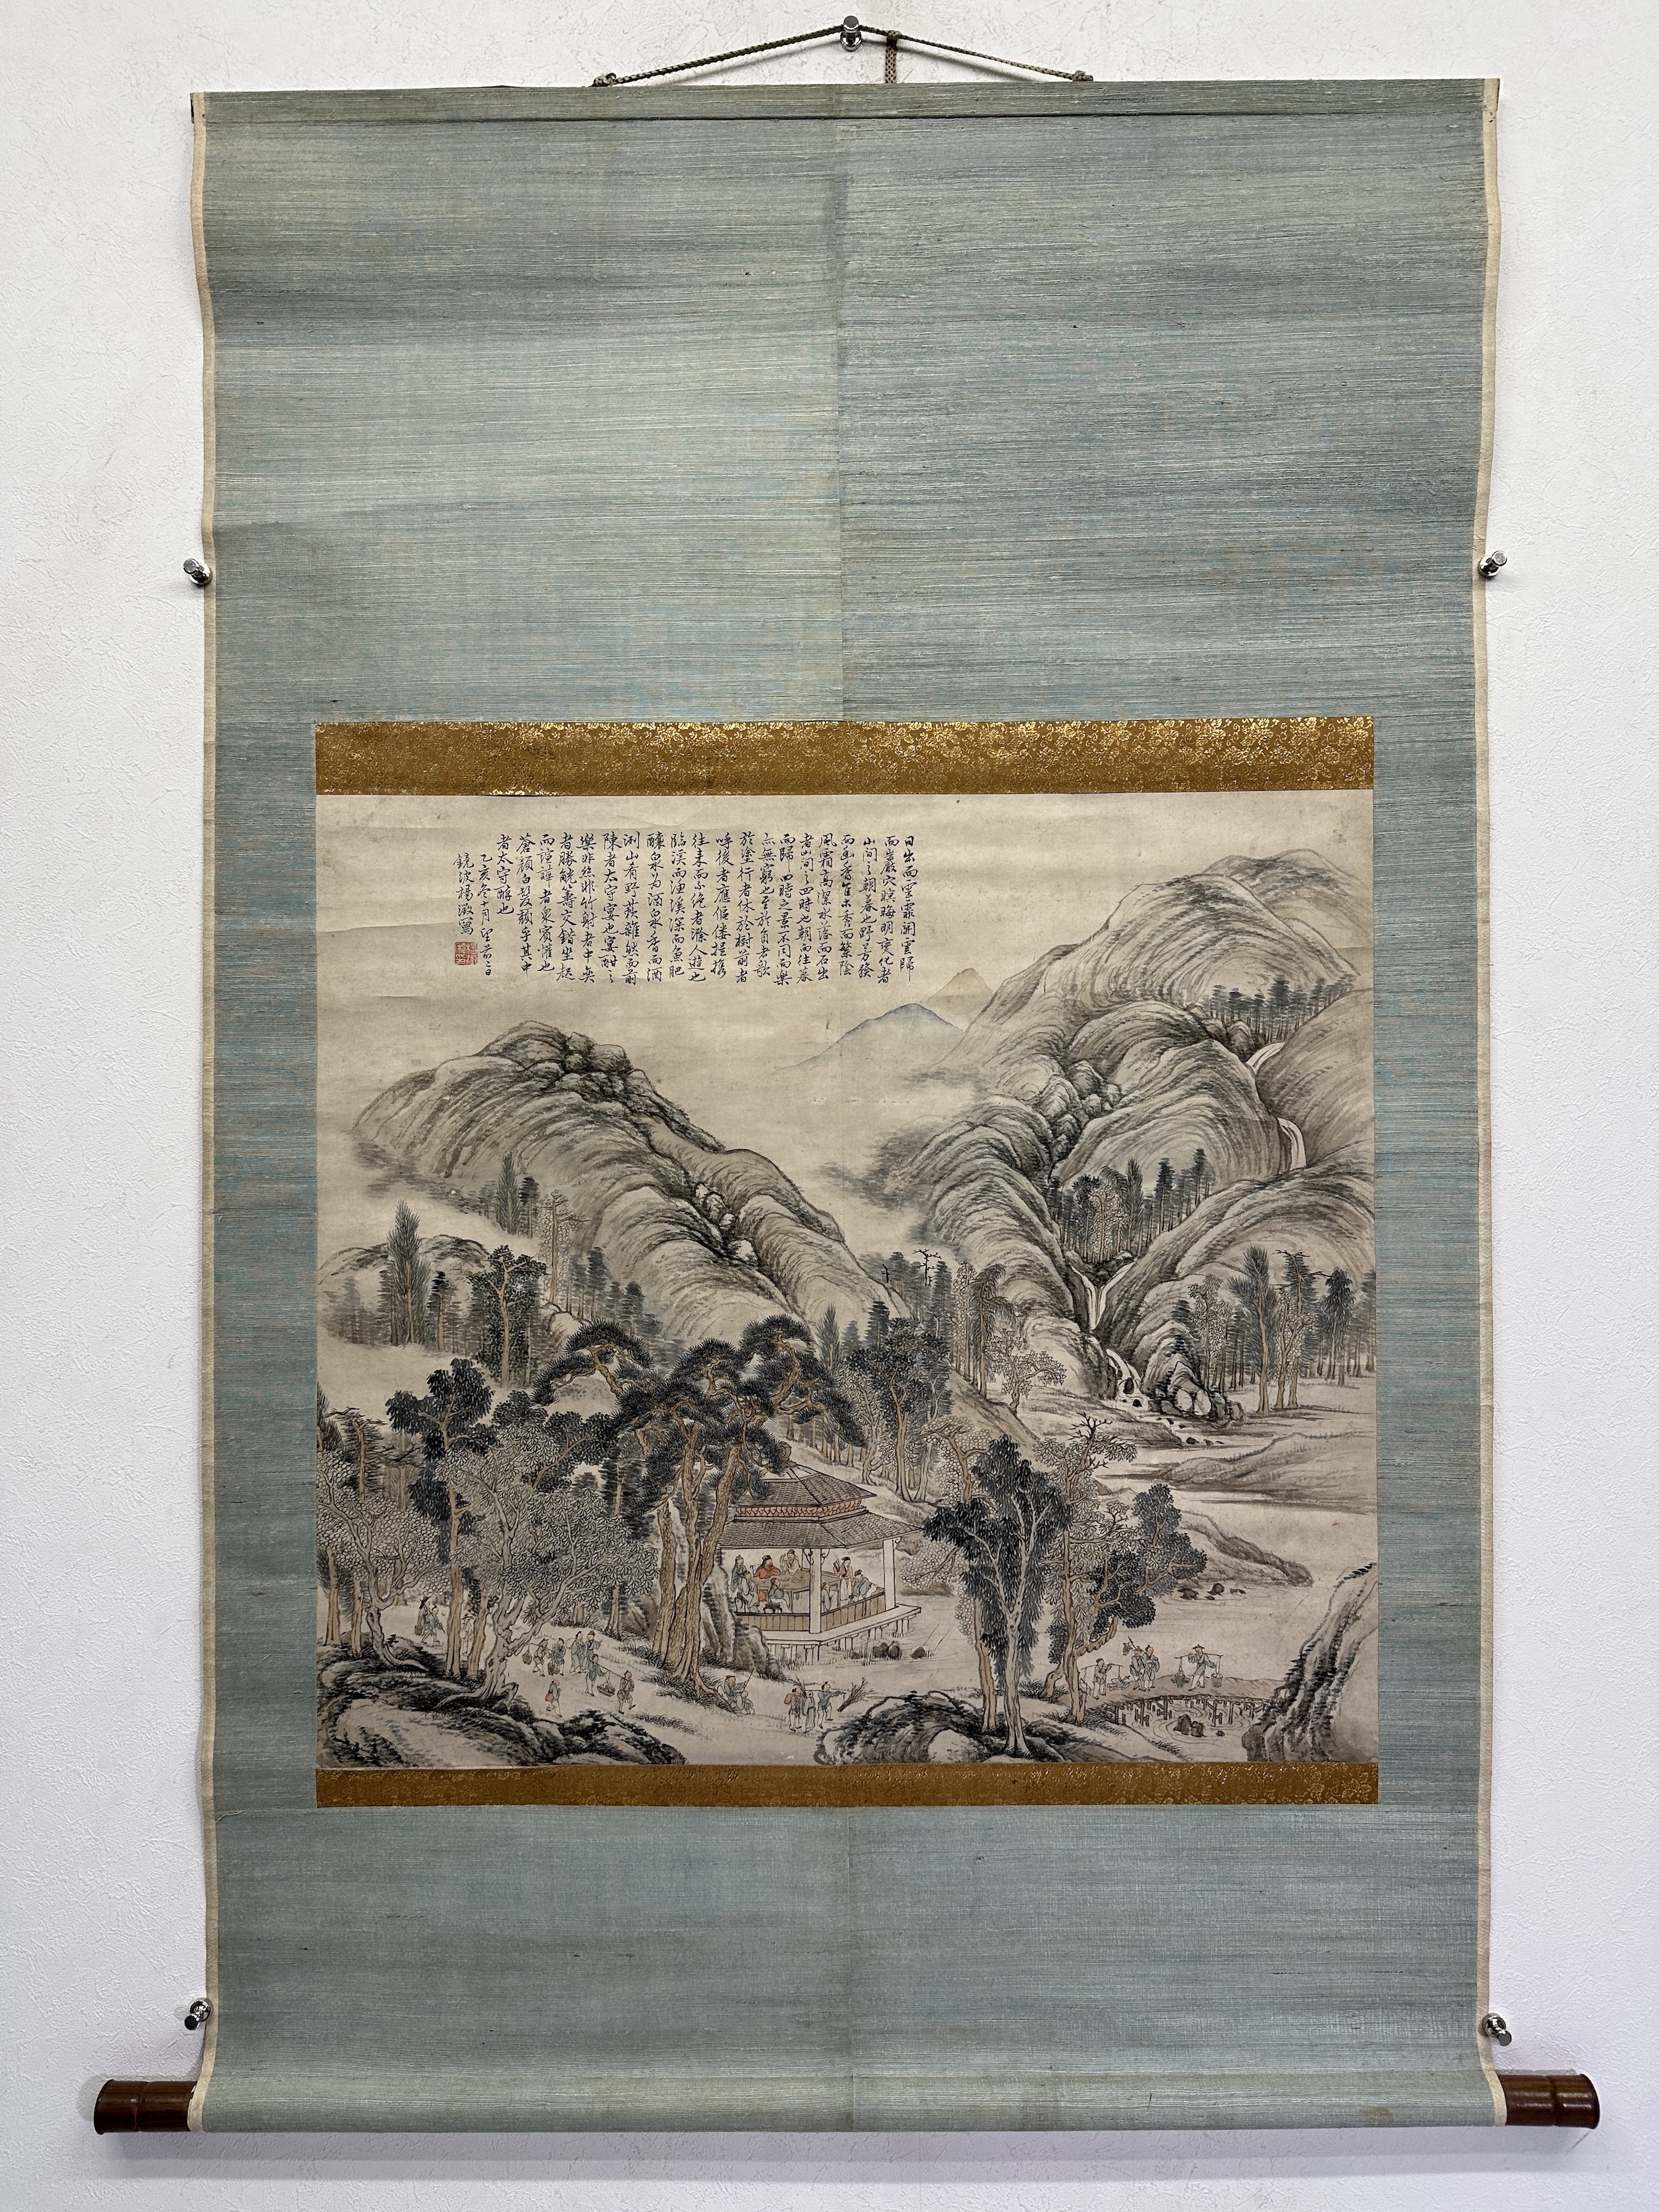 日出而雲霏開雲歸
而巖穴暝晦明變化者
山間之朝暮也野芳發
而幽香佳木秀而繁陰
風霜高潔水落而石出
者山間之四時也朝而往暮
而歸四時之景不同而樂
亦無窮也至於負者歌
於塗行者休於樹前者
呼後者應傴僂提攜
往來而不絕者滁人遊也
臨溪而漁溪深而魚肥
釀泉為酒泉香而酒
洌山肴野蔌雜然而前
陳者太守宴也宴酣之
樂非絲非竹射者中奕
者勝觥籌交錯坐起
而諠譁者衆賓懽也
蒼顏白髮頹乎其中
者太守醉也
乙亥冬十月望前二日
鏡波楊澂寫